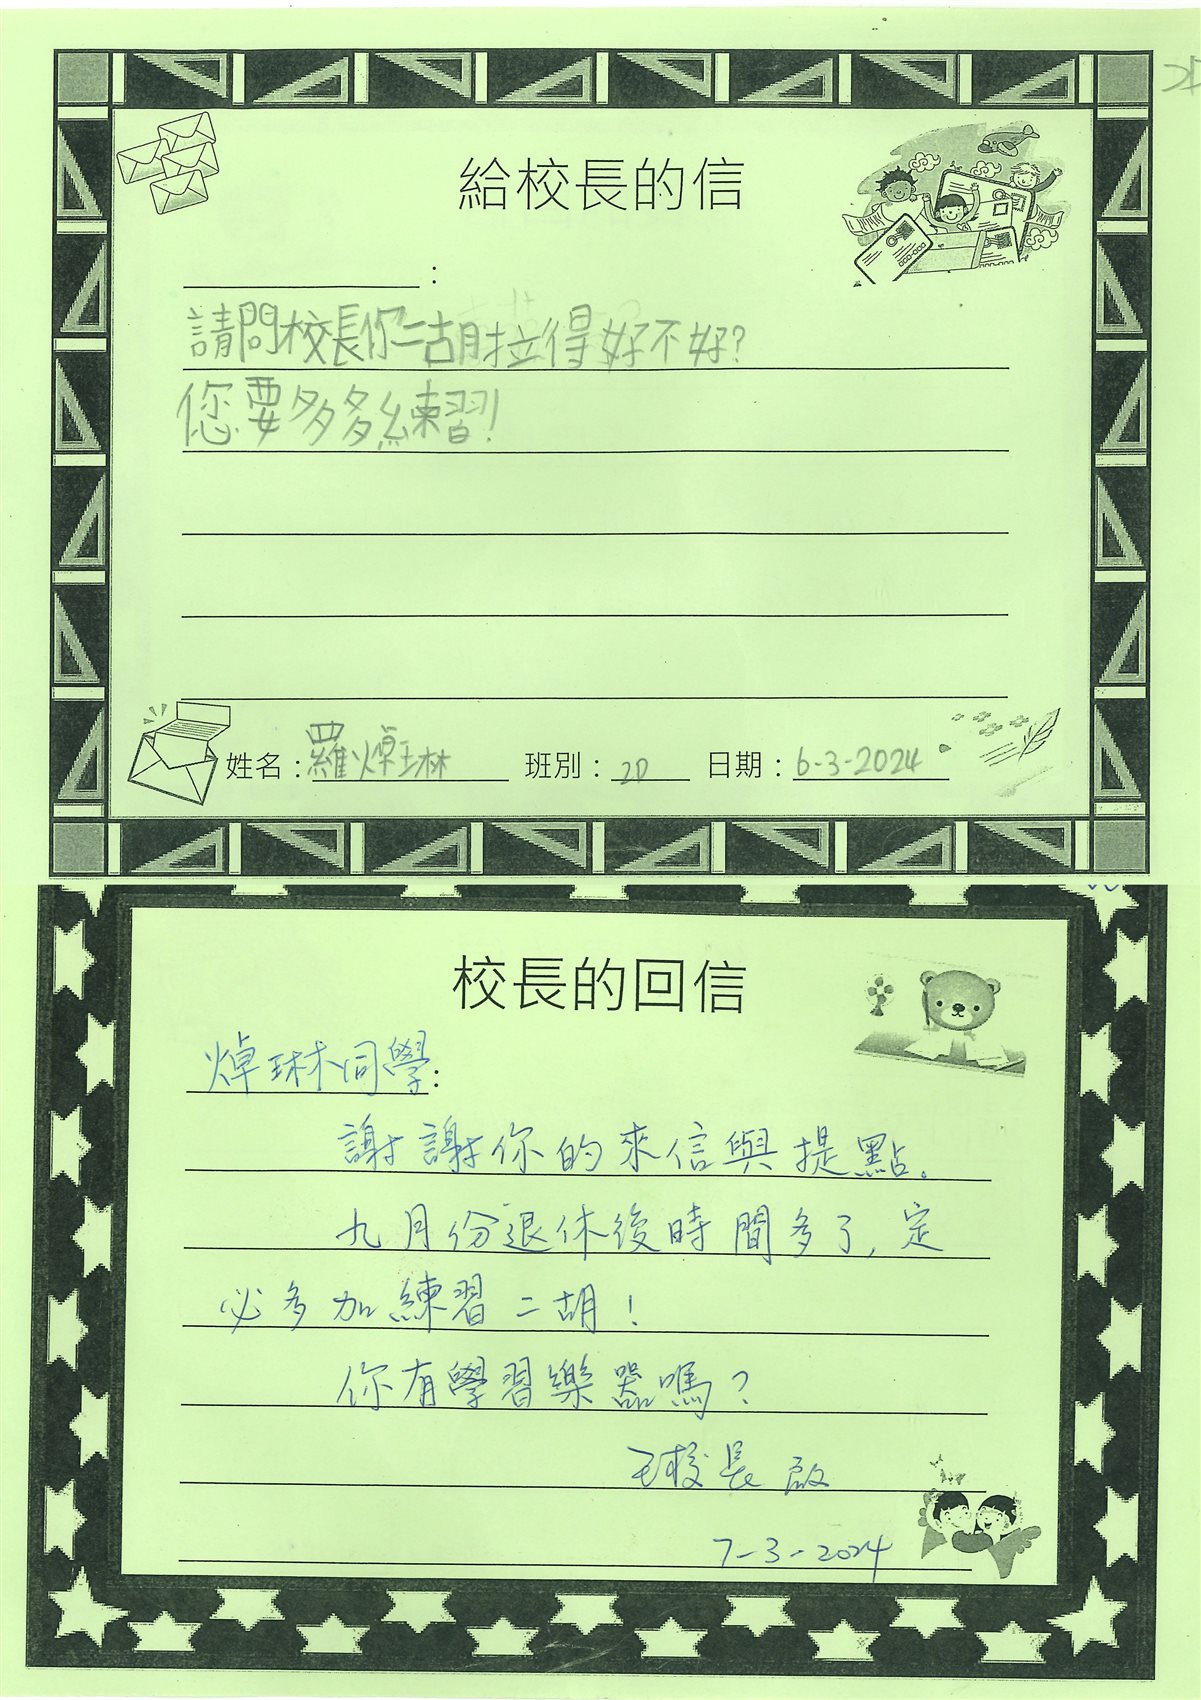 給校長的信
:
請問校長你二胡拉得好不好?
您要多多練習!
姓名:羅焯琳 班別:2D 日期:6-3-2024
校長的回信
焯琳同學:
謝謝你的來信與提點。
九月份退休後時間多了,定
必多加練習二胡!
你有學習樂器嗎?
王校長 啟
7-3-2024